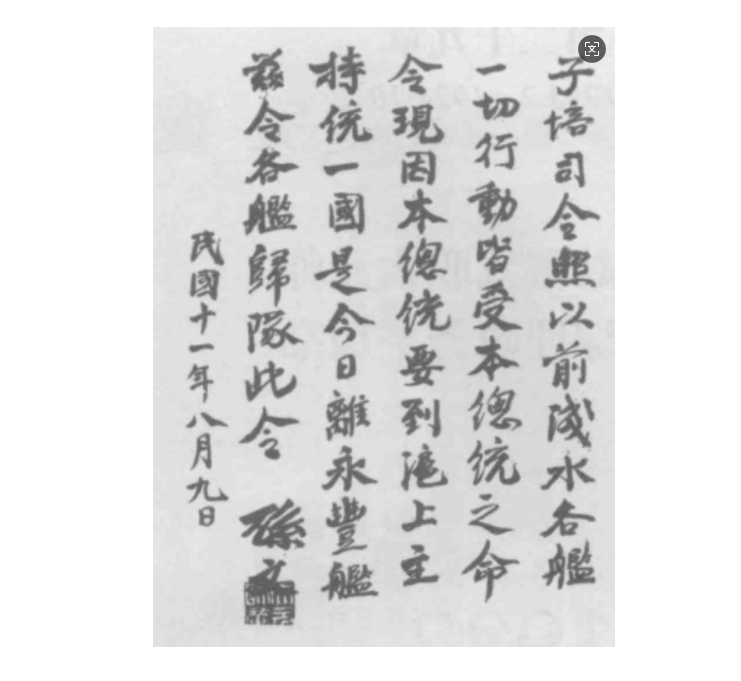 子培司令照以前淺水各艦
一切行動皆受本總統之命
令現因本總統要到滬上主
持統一國是今日離永豐艦
茲令各艦歸隊此令
孫文
民國十一年八月九日